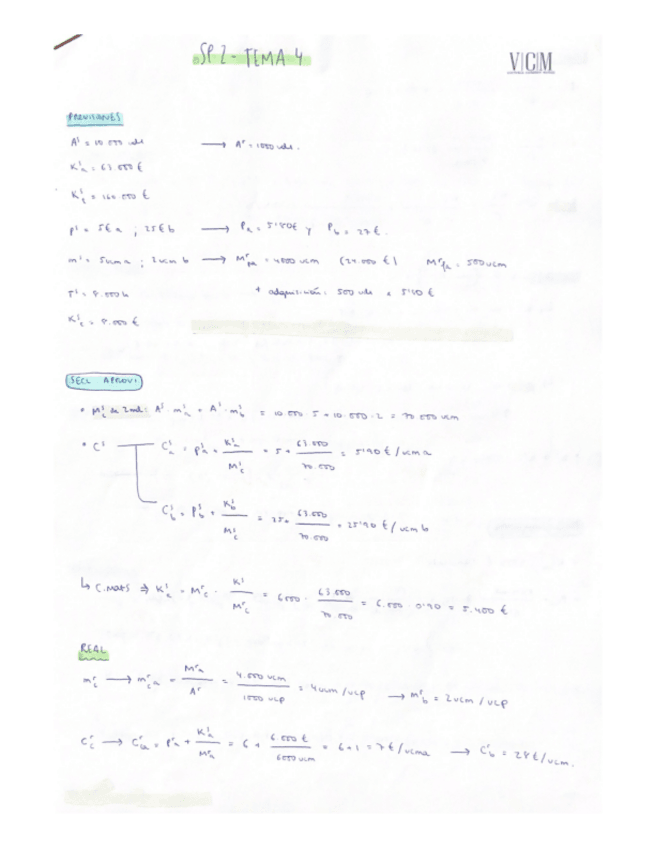 SP2 - TEMA 4
V|C|M
PREVISIONES
A^s = 10.000 uds → A^r = 1000 uds.
K^s_a = 63.000 €
K^s_t = 160.000 €
p^s = 5€ a ; 25€ b → P_a = 5'80€ y P_b = 27€.
m^s = 5ucm a ; 2ucm b → M^r_pa = 4000 ucm (24.000 €) M^r_fa = 500ucm
+ adquisición: 500 uds a €
K^s_t = 9.000 €
SECC APROVI
• M^s_c de 2 mat: A^s · m^s_a + A^s · m^s_b = 10.000 · 5 + 10.000 · 2 = 70.000 ucm
• C^s C^s_a = p^s_a + K^s_a / M^s_c = 5 + 63.000 / 70.000 = 5'90 € / ucm a
C^s_b = P^s_b + K^s_b / M^s_c = 25 + 63.000 / 70.000 = 25'90 € / ucm b
↳ C.mats ⇒ K^s_a = M^r_c · K^s / M^r_c = 6000 · 63.000 / 70.000 = 6.000 · 0'90 = 5.400 €
REAL
m^r_c → m^r_ca = M^r_a / A^r = 4.000 ucm / 1000 ucp = 4ucm / ucp → m^r_b = 2ucm / ucp
C^r_c → C^r_ca = p^r_a + K^r_a / M^r_a = 6 + 6.000 € / 6000 ucm = 6+1 = 7€ / ucm a → C^r_b = 28€ / ucm.